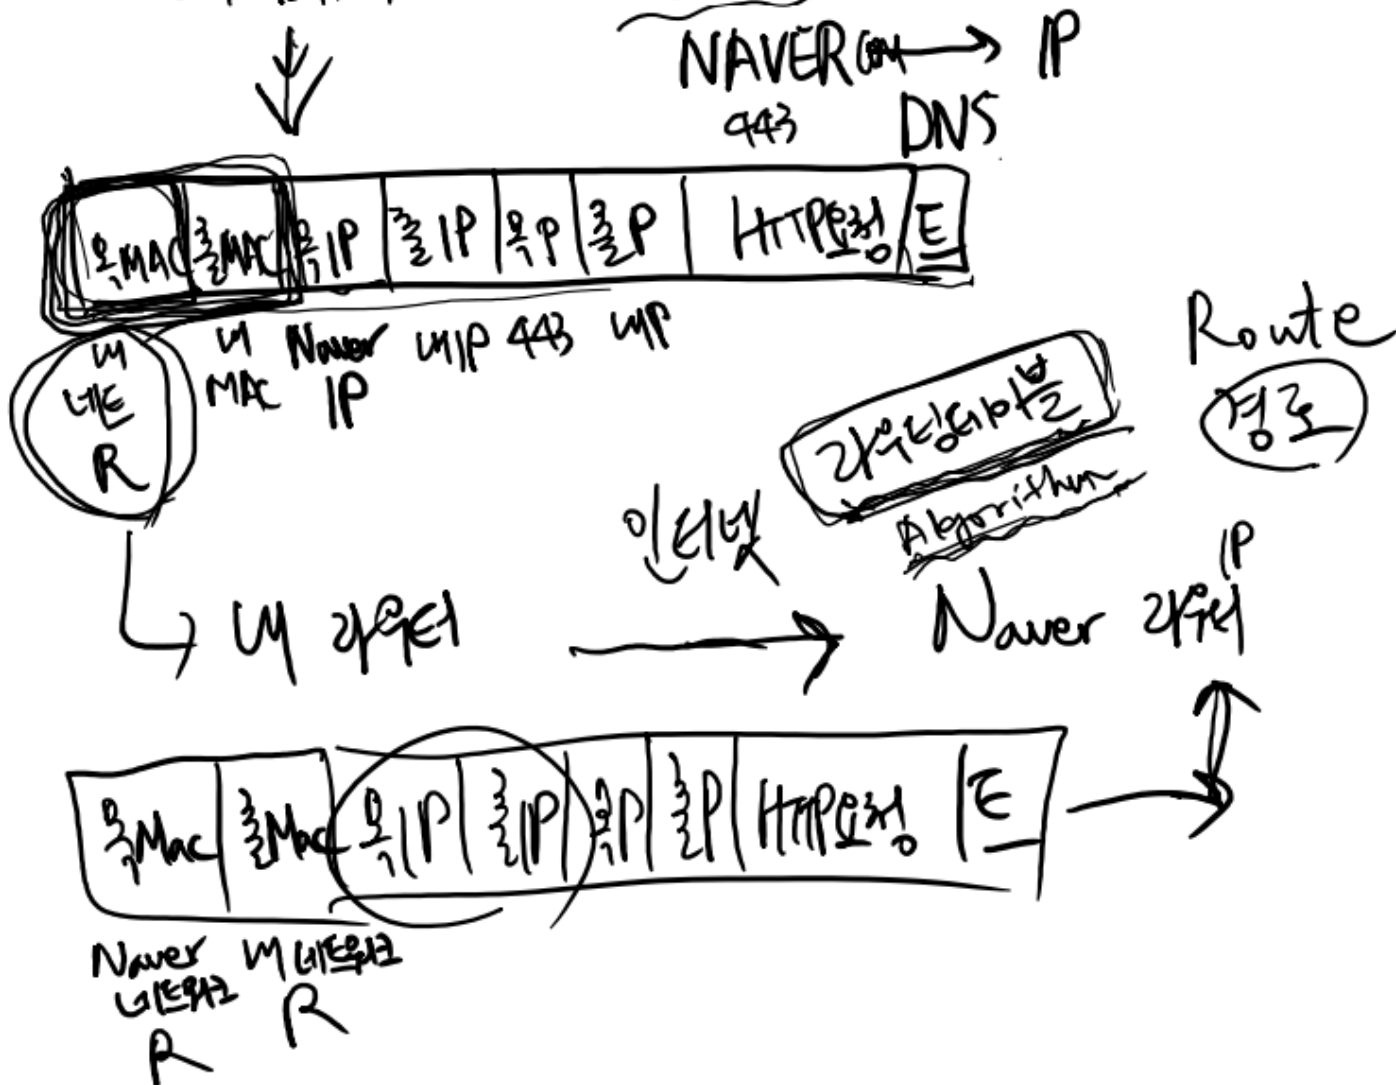 NAVER.com → IP
443 DNS
목MAC 출MAC 목IP 출IP 목P 출P HTTP요청 E
내 네트 R
내 MAC
Naver IP
내IP 443 내P
Route
경로
라우팅테이블
Algorithm
인터넷
내 라우터
Naver 라우터
IP
목Mac 출Mac 목IP 출IP 목P 출P HTTP요청 E
Naver 네트워크 R
내 네트워크 R